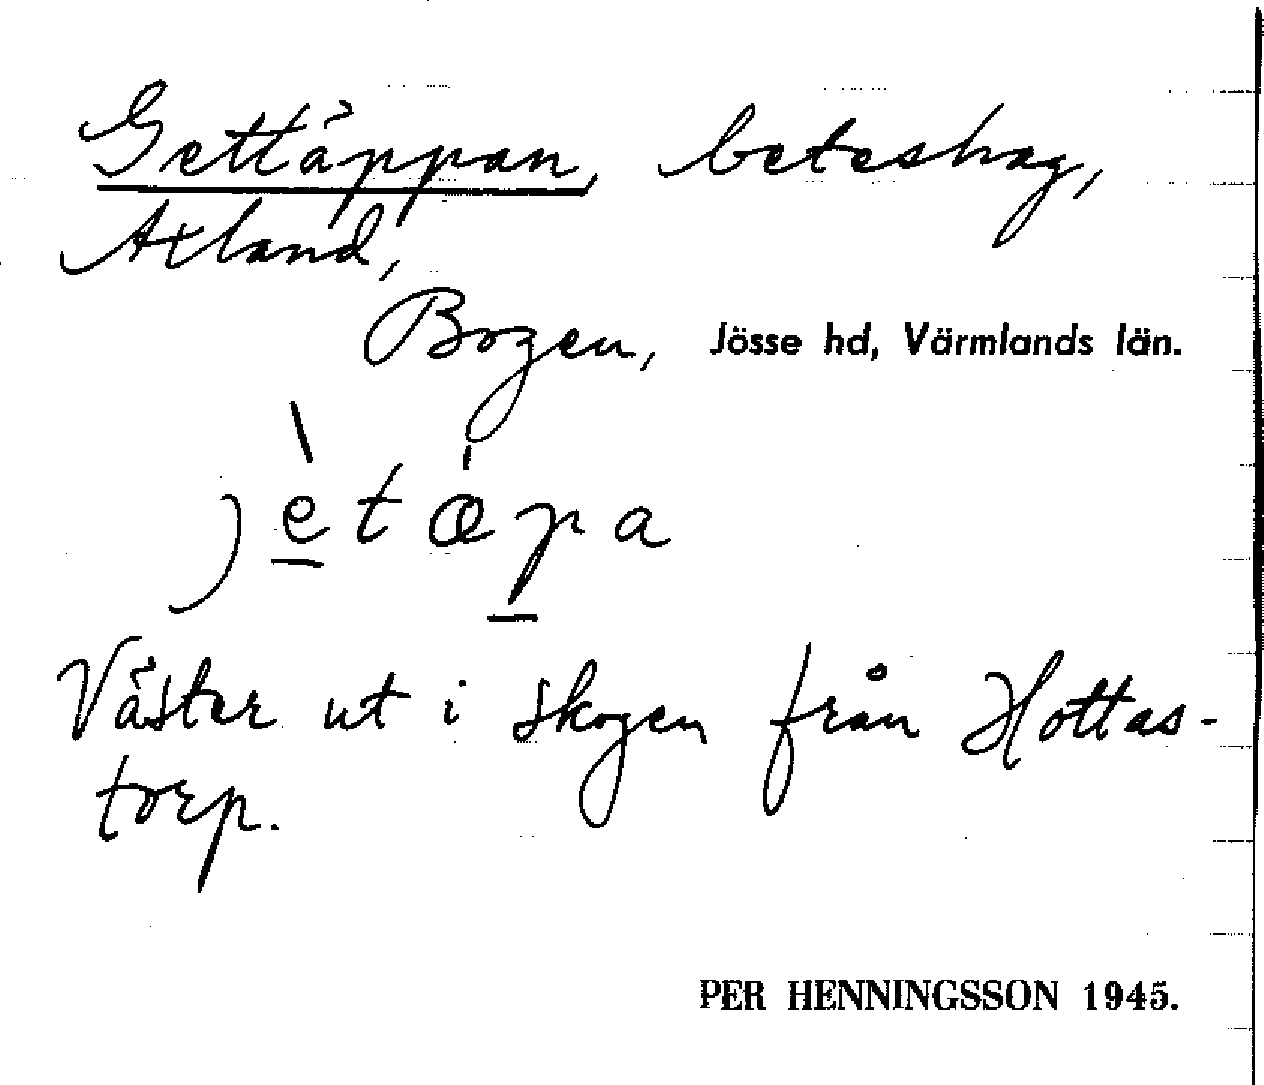 Gettäppan, beteshag,
Axland,
Bogen, Jösse hd, Värmlands län.
j è t æ̍ p a
Väster ut i skogen från Hottas-
torp.
PER HENNINGSSON 1945.